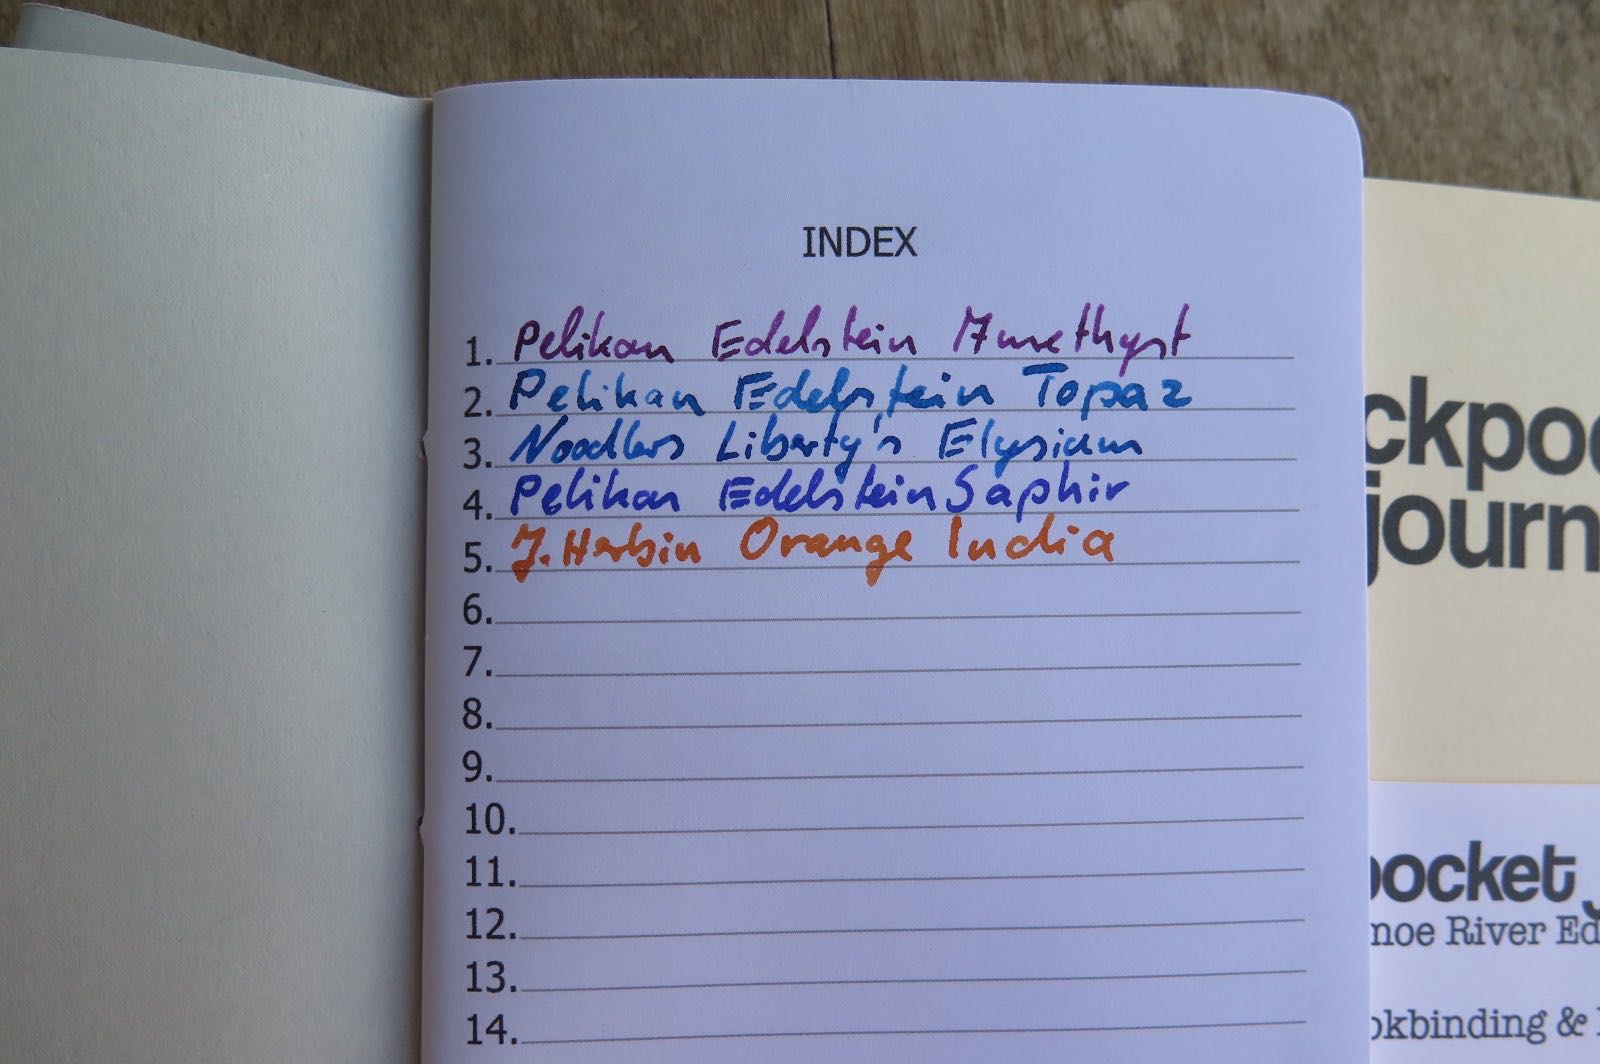 INDEX
1. Pelikan Edelstein Amethyst
2. Pelikan Edelstein Topaz
3. Noodlers Liberty's Elysium
4. Pelikan Edelstein Saphir
5. J. Herbin Orange India
6.
7.
8.
9.
10.
11.
12.
13.
14.
ckpoc
journ
pocket j
noe River Ed
okbinding &